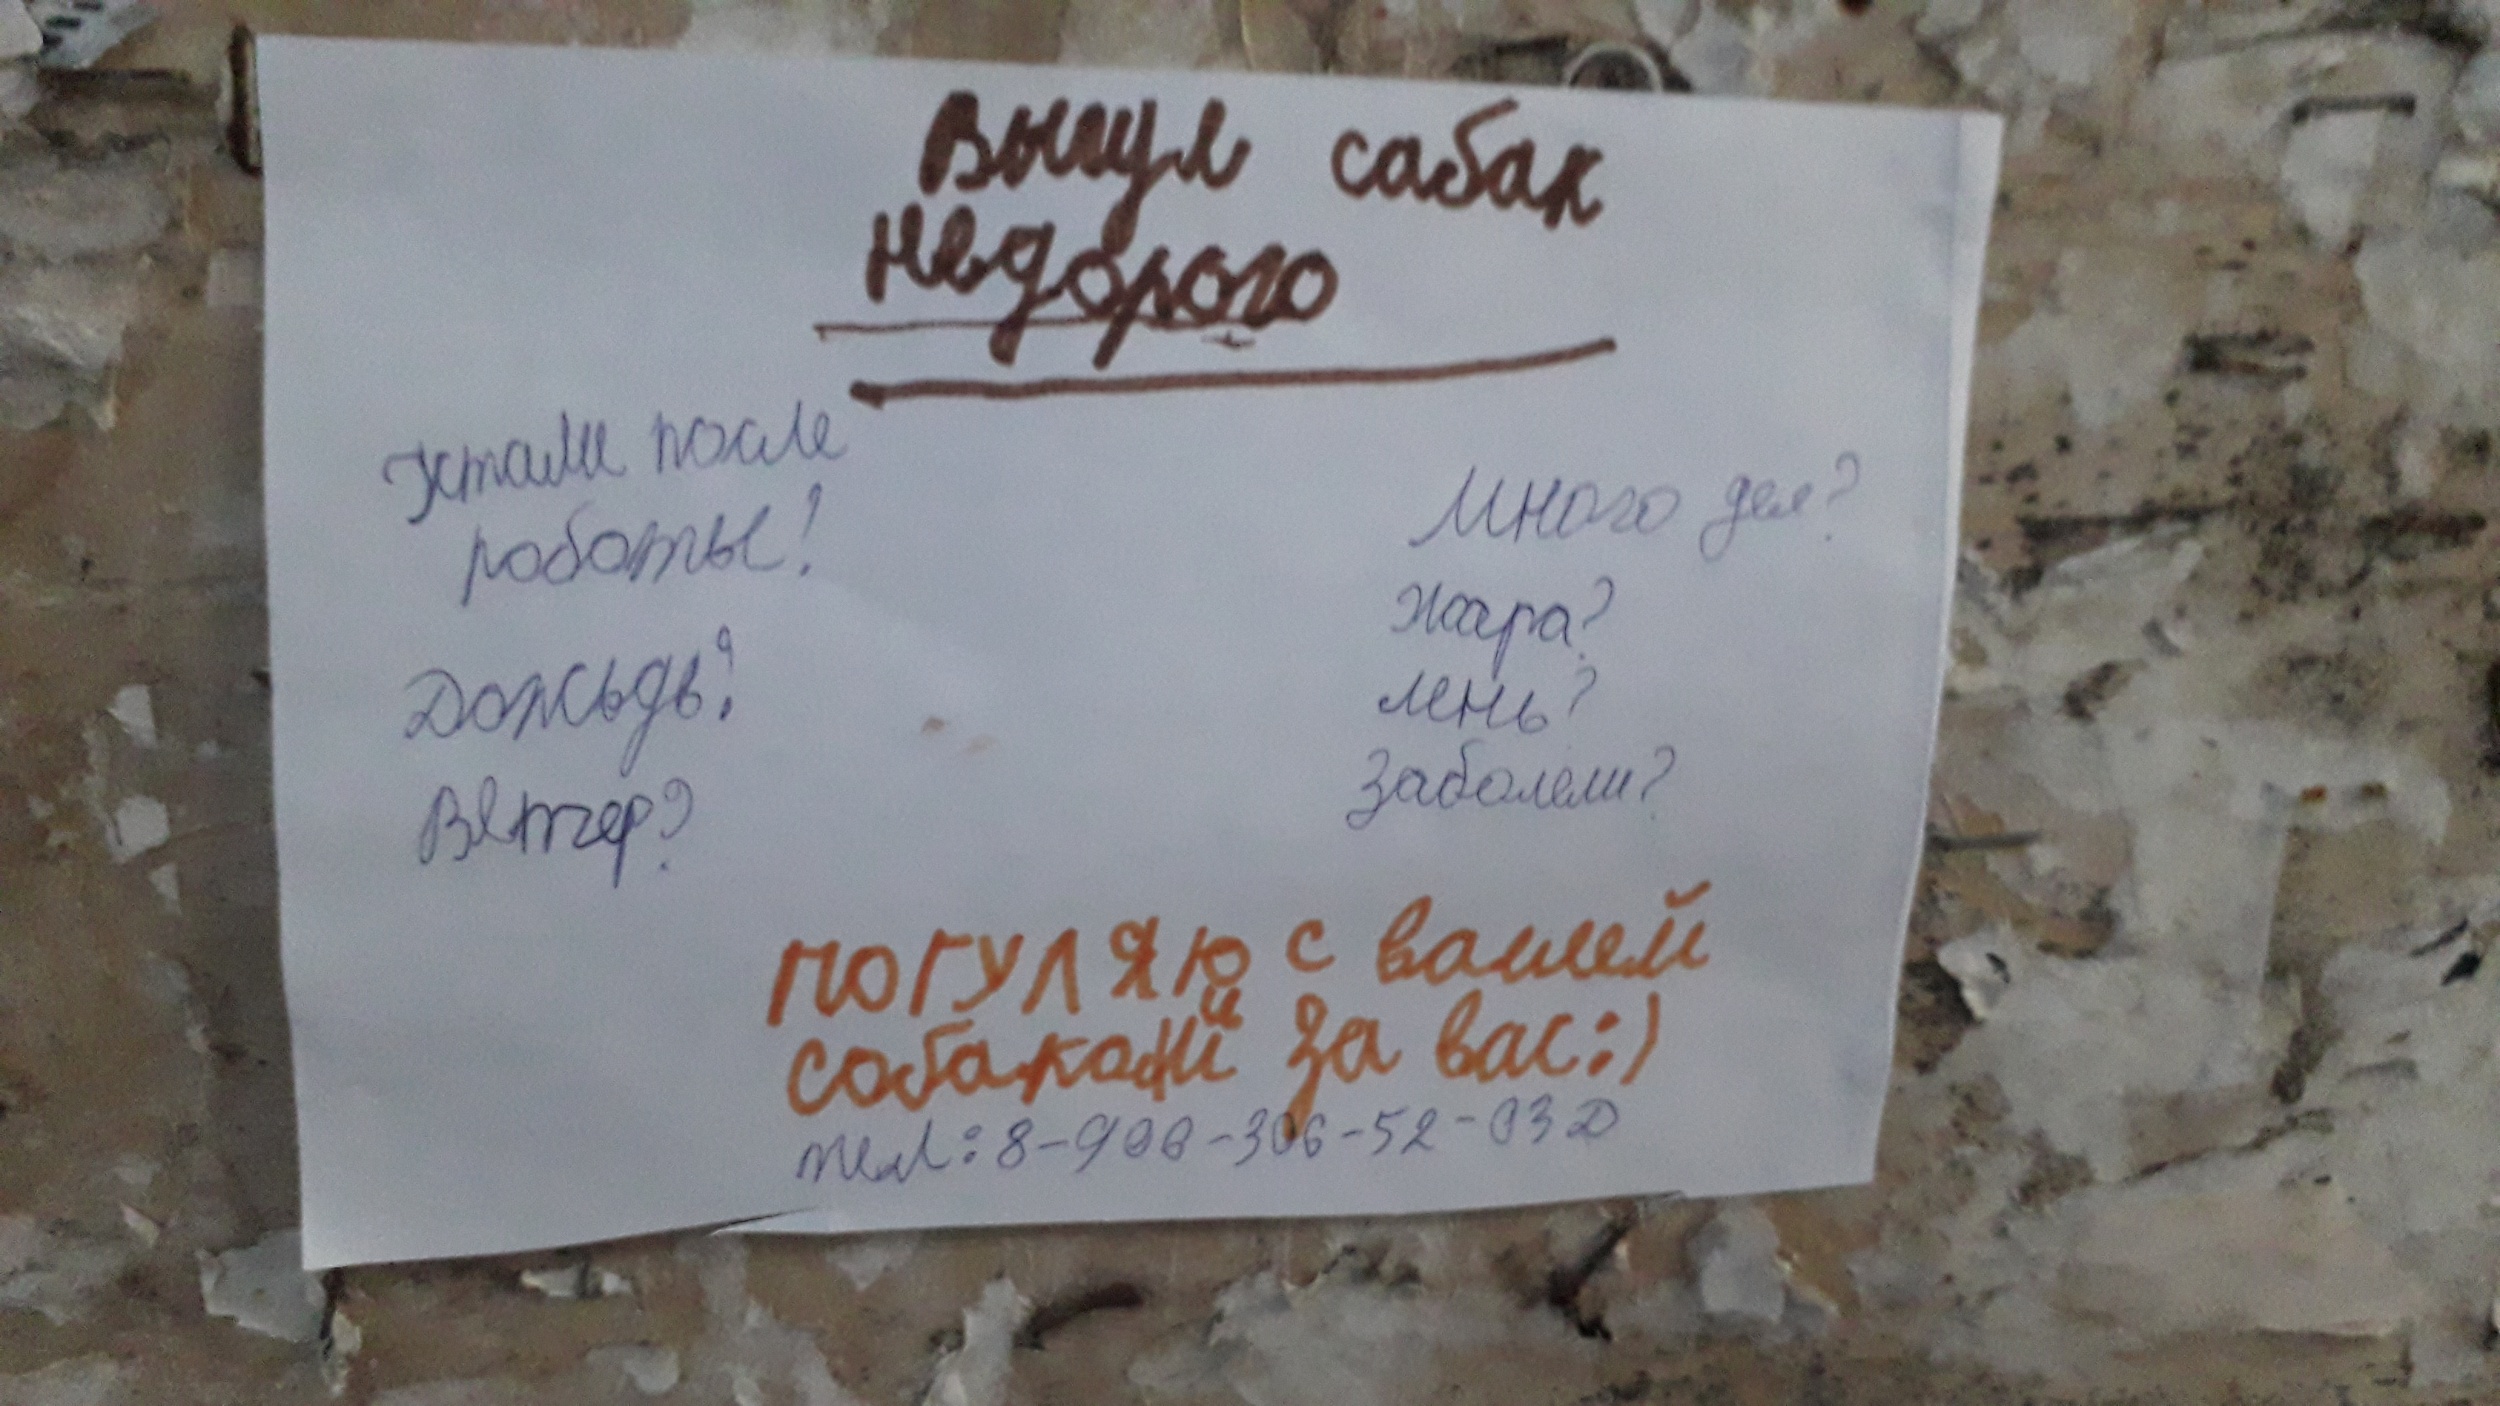 Выгул сабак
недорого
Устали после
работы?
Дожьдь?
Ветчер?
Много дел?
Жара?
лень?
Заболели?
ПОГУЛЯЮ с вашей
собакой за вас:)
тел: 8-900-306-52-03